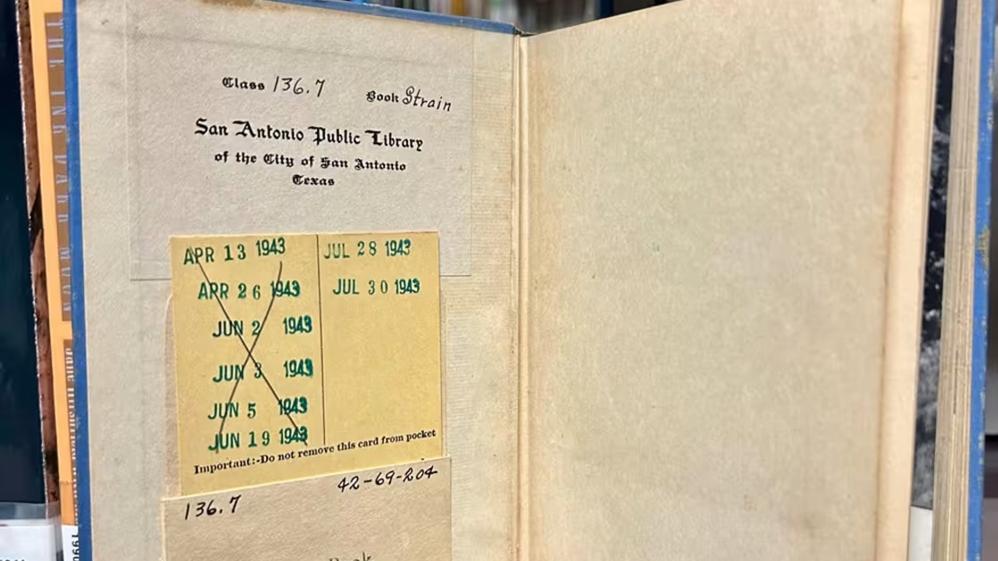 Class 136.7 Book Strain
San Antonio Public Library
of the City of San Antonio
Texas
APR 13 1943
APR 26 1943
JUN 2 1943
JUN 3 1943
JUN 5 1943
JUN 19 1943
JUL 28 1943
JUL 30 1943
Important:-Do not remove this card from pocket
136.7 42-69-204